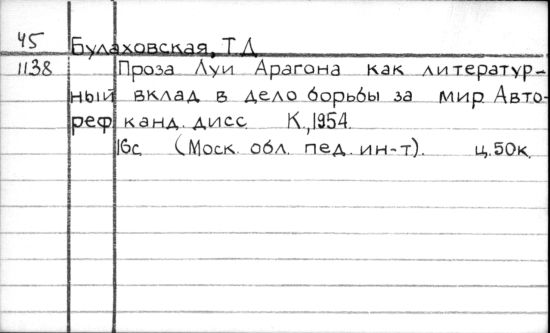 45 Булаховская, Т.Д
1138 Проза Луи Арагона как литератур-
ный вклад в дело борьбы за мир. Авто-
реф канд. дисс. К., 1954.
16с (Моск. обл. пед. ин-т). ц. 50к.